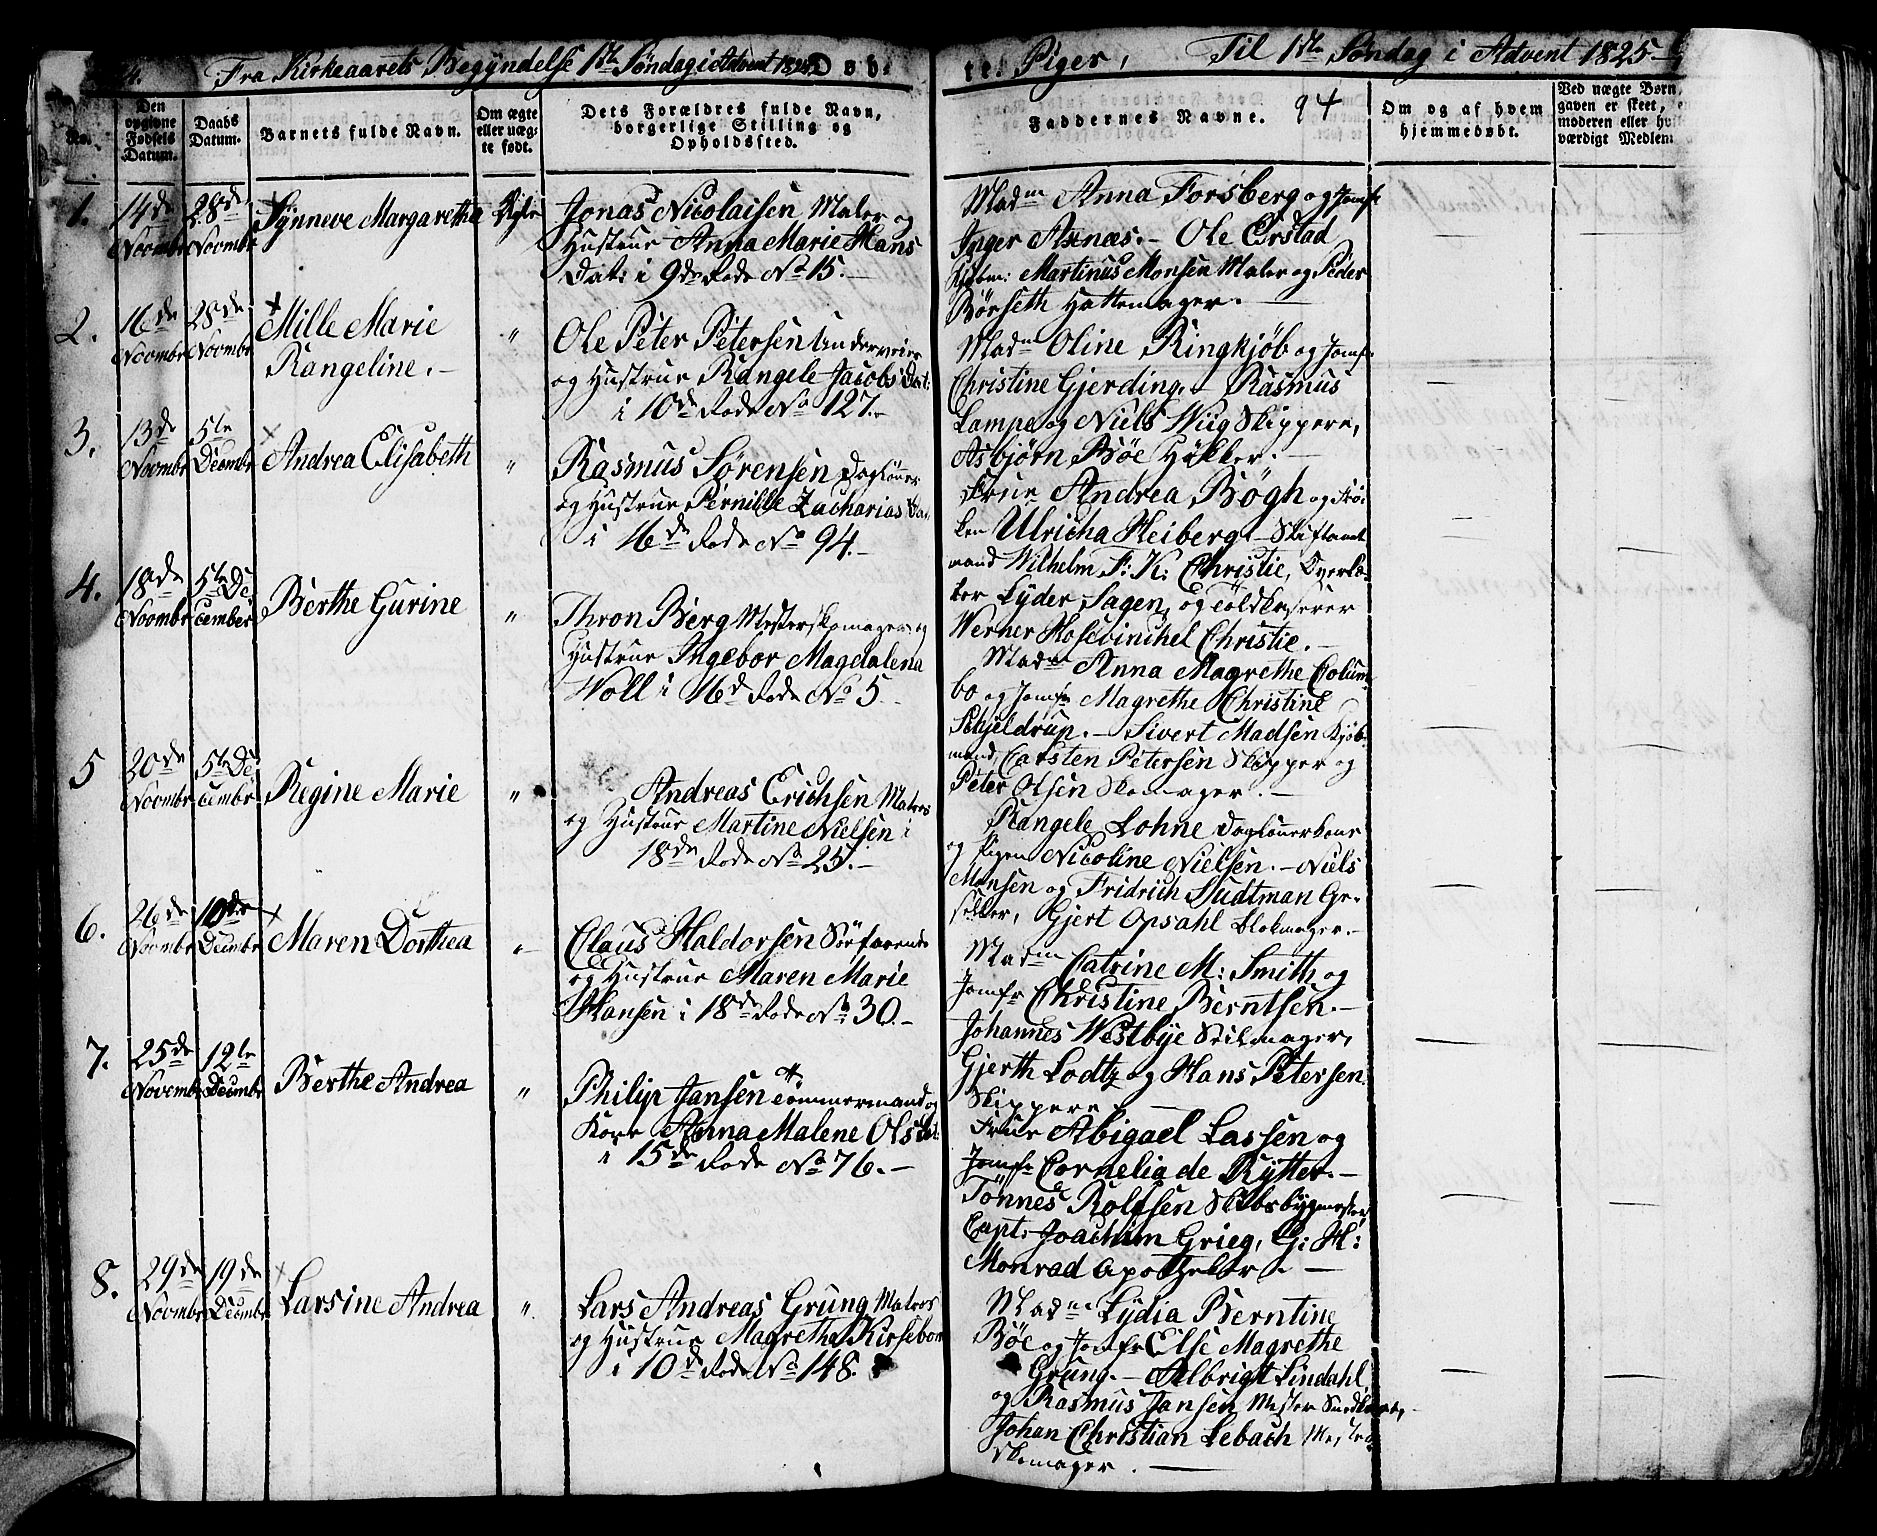 Fra Kirkeaarets Begyndelse 1ste Søndag i Advent Døb-
te Piger, Til 1ste Søndag i Advent 1825
94
No.
Den opgivne Fødsels Datum.
Daabs Datum.
Barnets fulde Navn.
Om ægte eller uægte født.
Dets Forældres fulde Navn, borgerlige Stilling og Opholdssted.
Faddernes Navne.
Om og af hvem hjemmedøbt.
Ved uægte Børn
gaven er skeet,
moderen eller
værdigt Medlem
1.
14de Novmbr
28de Novmbr
Synneve Margaretha
Ægte
Jonas Nicolaisen Maler og
Hustrue Anna Marie Hans
Dat: i 9de Rode No 15.-
Madm Anna Forsberg og Jomfr
Inger Asenæs.- Ole Ørstad
Martinus Monsen Maler og Peder
Børseth Hattemager.-
2.
16de Novmbr
28de Novmbr
Mille Marie
Rangeline.-
"
Ole Peter Petersen
og Hustrue Rangele Jacobs Dat:
i 10de Rode No 127.-
Madm Oline Ringkjøb og Jomfr
Christine Gjerding.- Rasmus
Lampe og Niels Wiig Skippere,
Asbjørn Bøe Høkker.-
3.
13de Novmbr
5te Decmbr
Andrea Elisabeth
"
Rasmus Sørensen Dagløner
og Hustrue Pernille Zacharias Dat:
i 16de Rode No 94.-
Frue Andrea Bøgh og Frø-
ken Ulricha Heiberg.- Stiftamt
mand Wilhelm F: K: Christie, Overlæ-
rer Lyder Sagen, og Toldkasserer
Werner Hosevinchel Christie.-
4.
18de Novmbr
5te De-
cember
Berthe Gurine
"
Thron Berg Mesterskomager og
Hustrue Ingebor Magdalena
Woll i 16d Rode No 5.-
Madm Anna Magrethe Colum-
bo og Jomfr Magrethe Christine
Schjeldrup.- Sivert Madsen Kjøb-
mand, Carsten Petersen Skipper og
Peter Olsen Skomager.-
5
20de Novmbr
5te De-
cembr
Regine Marie
"
Andreas Erichsen Matros
og Hustrue Martine Nielsen i
18de Rode No 25.-
Rangele Lohne Daglønerkone
og Pigen Nicoline Nielsen.- Niels
Monsen og Fridrich Sudtman Ge-
seller, Gjert Opsahl Blokmager.-
6.
26de Novmbr
10de Decmbr
Maren Dorthea
"
Claus Haldorsen Søefarende
og Hustrue Maren Marie
Hansen i 18de Rode No 30.-
Madm Catrine M: Smith og
Jomfr Christine Berntsen.-
Johannes Westbye Seilmager,
Gjerth Lodtz og Hans Petersen
Skippere.-
7.
25de Novembr
12te Decmbr
Berthe Andrea
"
Philip Jansen Tømmermand og
Kone Anna Malene Ols Dat:
i 15de Rode No 76.-
Frue Abigael Lassen og
Jomfr Cornelia de Rytter.-
Tønnes Rolfsen Skibsbygmester,
Capt: Joachim Grieg, G: H:
Monrad Apotheker.-
8.
29de Novmbr
19de Decmbr
Larsine Andrea
"
Lars Andreas Grung Matros
og Hustrue Magretha Kirsebom
i 10de Rode No 148.
Madme Lydia Berntine
Bøe og Jomfr Else Magrethe
Grung.- Albrigt Lindahl
og Rasmus Jansen Mester Snedkere,
Johan Christian Lebach Mester
Skomager.-